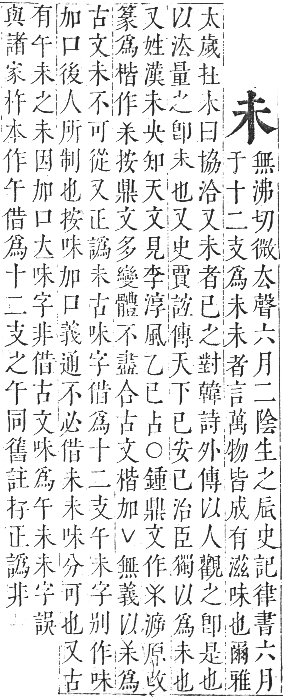 未
無沸切微去聲六月二陰生之辰史記律書六月
于十二支爲未未者言萬物皆成有滋味也爾雅
太歲在未曰協洽又未者已之對韓詩外傳以人觀之卽是也
以法量之卽未也又史賈誼傳天下已安已治臣獨以爲未也
又姓漢未央知天文見李淳風乙巳占○鍾鼎文作 原攷
篆爲楷作 按鼎文多變體不盡合古文楷加∨無義以 爲
古文未不可從又正譌未古味字借爲十二支午未字別作味
加口後人所制也按味加口義通不必借未未味分可也又古
有午未之未因加口大味字非借古文味爲午未未字誤
與諸家杵本作午借爲十二支之午同舊註 正譌非